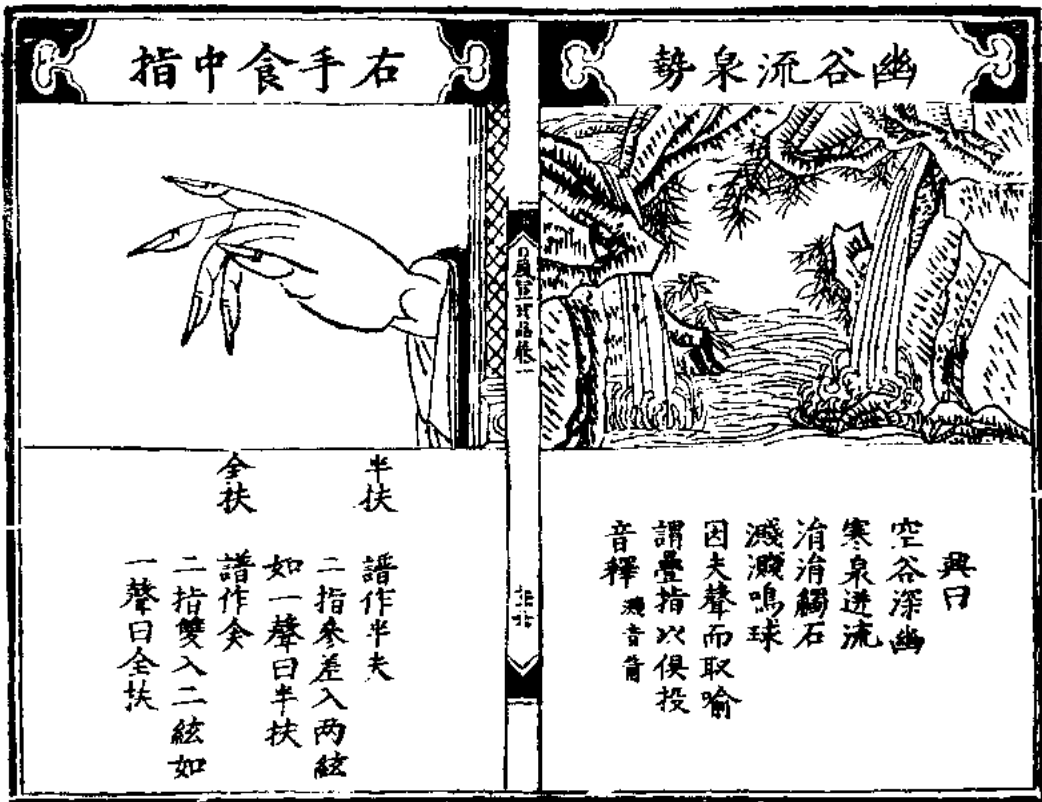 幽谷流泉勢
興曰
空谷深幽
寒泉迸流
涓涓觸石
濺濺鳴球
因夫聲而取喻
謂疊指以俱投
音釋 濺音箭
右手食中指
半扶
譜作半夫
二指參差入两絃
如一聲曰半扶
全扶
二指雙入二絃如
一聲曰全扶